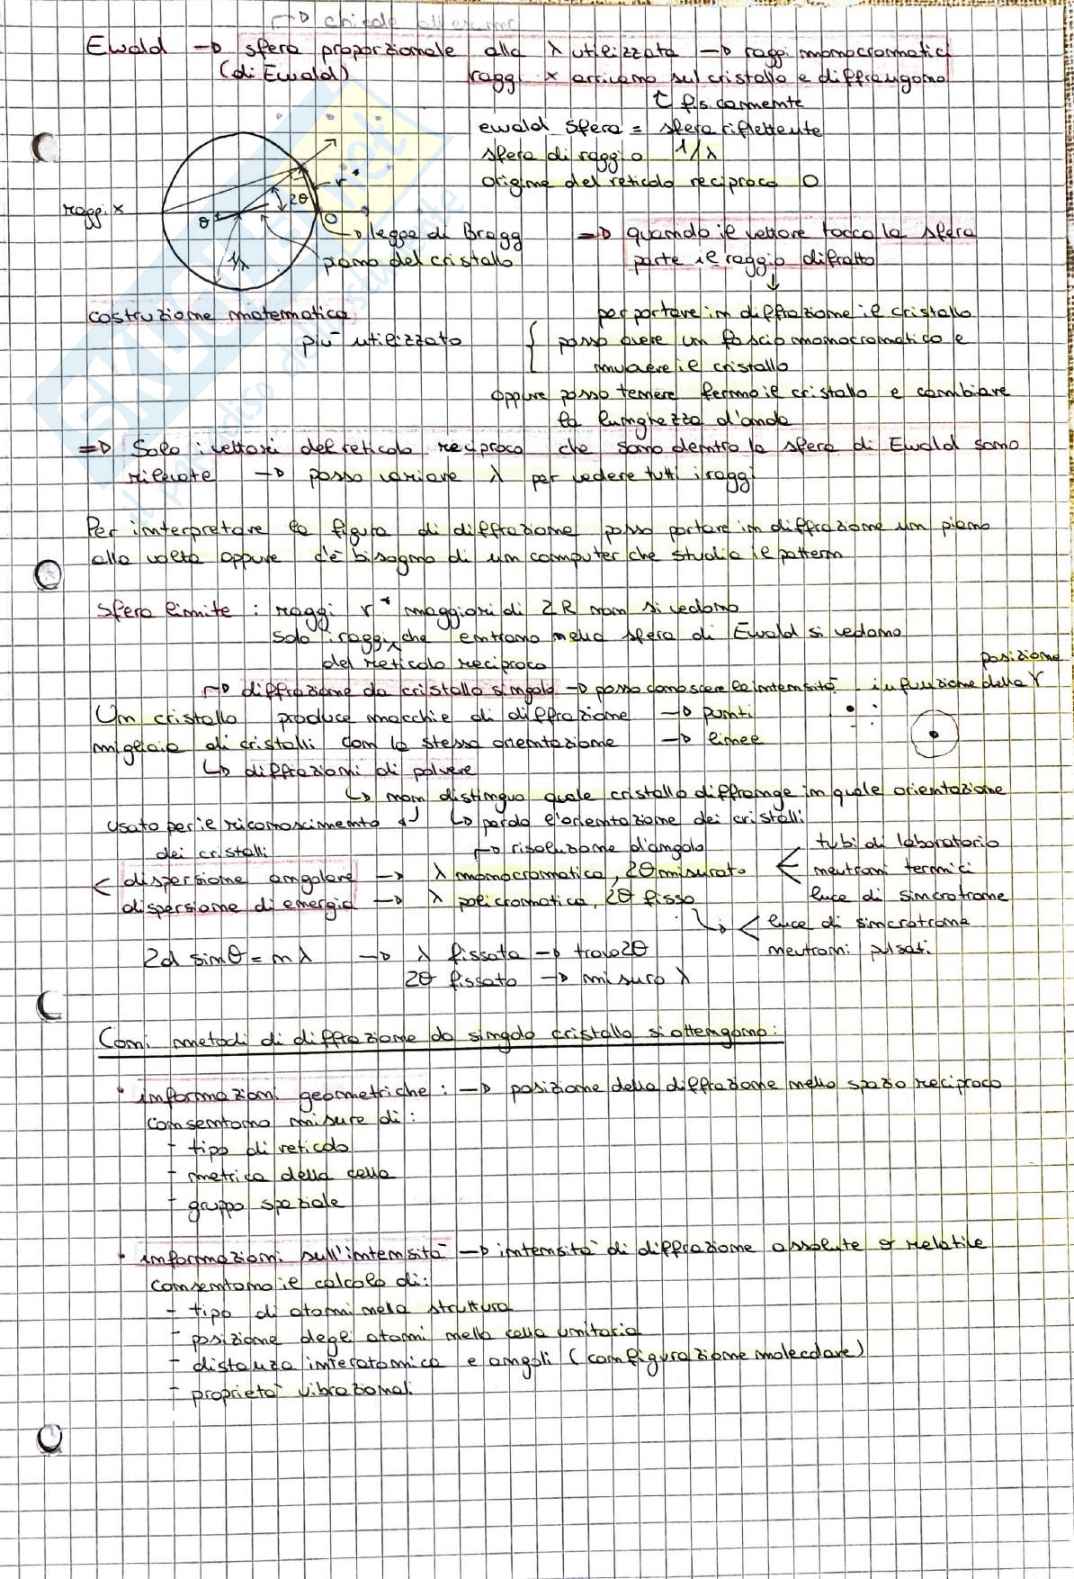 → chiede all'esame
Ewald → sfera proporzionale alla λ utilizzata → raggi monocromatici
(di Ewald) raggi x arrivano sul cristallo e diffrangono
↑ fis camente
ewald sfera = sfera riflettente
sfera di raggio 1/λ
origine del reticolo reciproco O
r*
2θ
raggi x
θ
O
1/λ
→ legge di Bragg
piano del cristallo
⇒ quando il vettore tocca la sfera
parte il raggio difratto
↓
costruzione matematica
più utilizzato
per portare in diffrazione il cristallo
{ posso avere un fascio monocromatico e
muovere il cristallo
oppure posso tenere fermo il cristallo e cambiare
la lunghezza d'onda
⇒ Solo i vettori del reticolo reciproco che sono dentro la sfera di Ewald sono
rilevate → posso variare λ per vedere tutti i raggi
Per interpretare la figura di diffrazione posso portare in diffrazione un piano
alla volta oppure c'è bisogno di un computer che studia il pattern
sfera limite : raggi r* maggiori di 2R non si vedono
solo i raggi che entrano nella sfera di Ewald si vedono
del reticolo reciproco
posizione
→ diffrazione da cristallo singolo → posso conoscere la intensità in funzione della r
Un cristallo produce macchie di diffrazione → punti
migliaia di cristalli con la stessa orientazione → linee
↳ diffrazioni di polvere
↳ non distinguo quale cristallo diffrange in quale orientazione
usato per il riconoscimento ↲ ↳ perdo l'orientazione dei cristalli
dei cristalli
→ risoluzione d'angolo
< dispersione angolare → λ monocromatica, 2θ misurato <
dispersione di energia → λ policromatica, 2θ fisso
tubi di laboratorio
neutroni termici
luce di sincrotrone
↳ < luce di sincrotrone
neutroni pulsati
2d sinθ = nλ → λ fissata → trovo 2θ
2θ fissato → misuro λ
Con i metodi di diffrazione da singolo cristallo si ottengono:
• informazioni geometriche : → posizione della diffrazione nello spazio reciproco
consentono misure di :
- tipo di reticolo
- metrica della cella
- gruppo spaziale
• informazioni sull'intensità → intensità di diffrazione assolute o relative
consentono il calcolo di:
- tipo di atomi nela struttura
- posizione degli atomi nella cella unitaria
- distanza interatomica e angoli (configurazione molecolare)
- proprietà vibrazionali